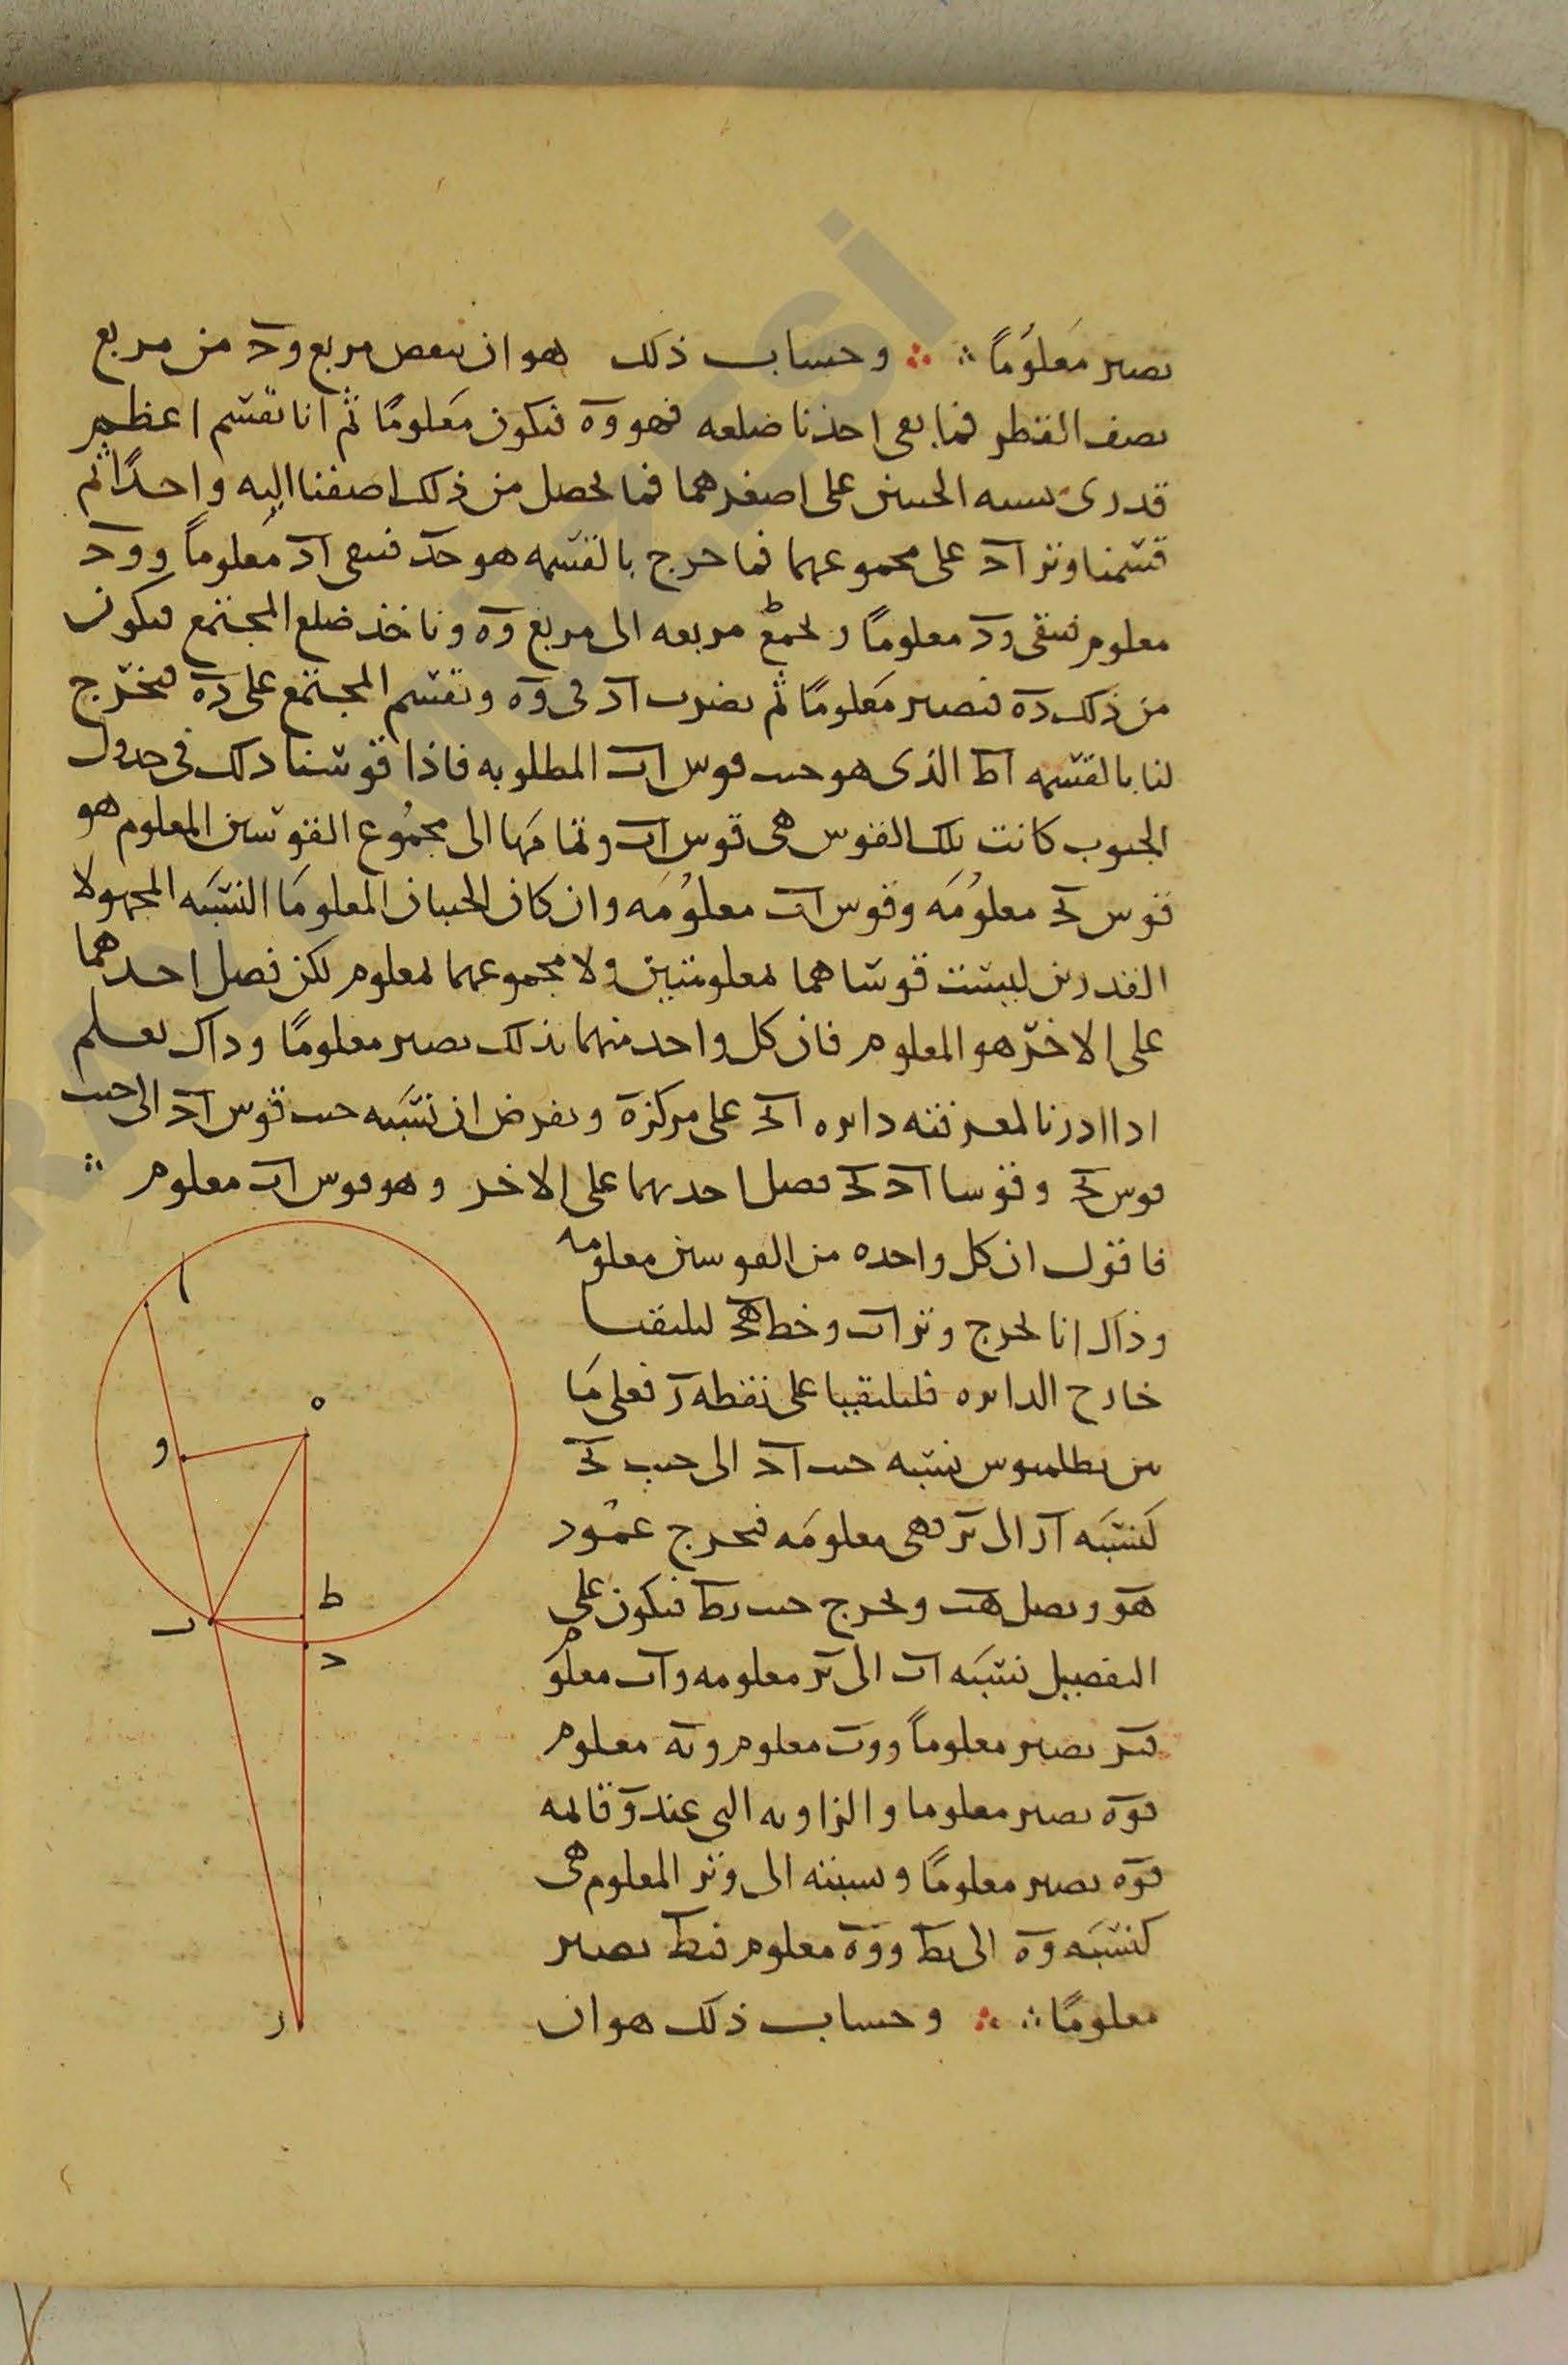 نصير مَعلوُماً ∴ ∴ وحساب ذلك هو ان ننقص مربع وج من مربع
نصف القطر فما بقى اخذنا ضلعه فهو وه فيكون مَعلومًا ثم انا نقسم اعظم
قدرى نسبه الجيبين على اصغرهما فما يحصل من ذلك اضفنا اليه واحدًا ثم
قسمنا وتر اج على مجموعهما فما خرج بالقسمه هو جد فيبقى اد مَعلوماً ووج
معلوم فيبقى ود معلومًا ونجمع مربعه الى مربع وه وناخذ ضلع المجتمع فيكون
من ذلك ده فيصير مَعلومًا ثم نضرب اد فى وه ونقسم المجتمع على ده فيخرج
لنا بالقسمه اط الذى هو جيب قوس اب المطلوبه فاذا قوسنا ذلك فى جدول
الجيوب كانت تلك القوس هى قوس اب وتمامَها الى مجمُوع القوسين المعلوم هو
قوس بج معلوُمَه وقوس اب معلوُمَه وان كان الجيبان المعلومَا النسبَه المجهولا
القدرين ليست قوساهما بمعلومتين ولا مجموعهما بمعلوم لكن فضل احدهما
على الاخر هو المعلوم فان كل واحد منهما بذلك يصير معلومًا وذاك نعلم
اذا ادرنا لمعرفته دايره ابج على مركز ه ونفرض ان نسَبه جيب قوس اج الى جيب
قوس بج وقوسا اج بج فضل احدىهما على الاخر وهو قوس اب معلوم ∴
فاقول ان كل واحده من القوسين معلومه
وذاك انا نخرج وتر اب وخط هج ليلتقيا
خارج الدايره فليلتقيا على نقطه ر فعلى مَا
بين بطلميوس نسبه جيب اج الى جيب بج
كَنسبَه ار الى بر فهى معلومَه فنخرج عمُود
هو ونصل هب ونخرج جيب بط فيكون على
التفصيل نسبَه اب الى بر معلومه واب معلوم
فبر يصير معلوماً ووب معلوم وبه معلوم
فوه يصير معلوما والزاويه التى عند و قايمه
فوه يصير معلومًا ونسبته الى وتر المعلوم هى
كنسبَه وه الى بط ووه معلوم فبط يصير
معلومًا ∴ ∴ وحساب ذلك هو ان
ا
ه
و
ط
ب
ج
ر